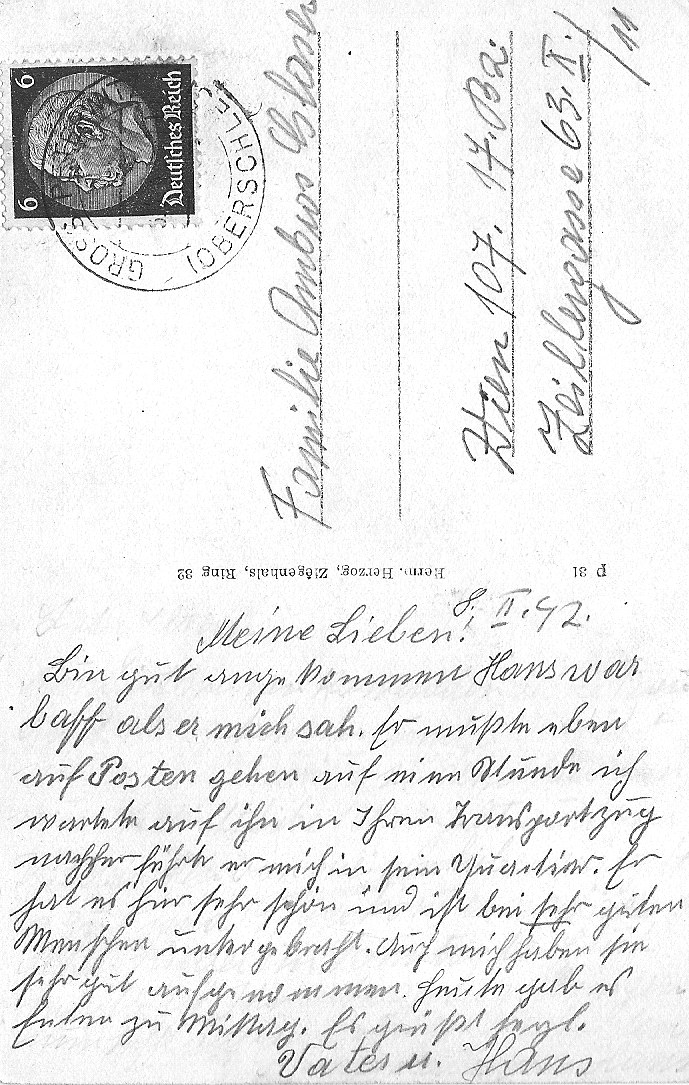 6 Deutsches Reich 6
(OBERSCHLE
Familie Ambros
Wien 107. 17. Bez.
63. II./
11
P 31
Herm. Herzog, Ziegenhals, Ring 32
8. II. 42.
Meine Lieben!
Bin gut angekommen Hans war
baff als er mich sah. Er mußte eben
auf Posten gehen auf eine Stunde ich
wartete auf ihn in Ihren Transportzug
nachher führte er mich in sein Quartier. Er
hat es hier sehr schön und ist bei sehr guten
Menschen untergebracht. Auch mich haben sie
sehr gut aufgenommen. Heute gab es
Enten zu Mittag. Es grüßt herzl.
Vater u. Hans